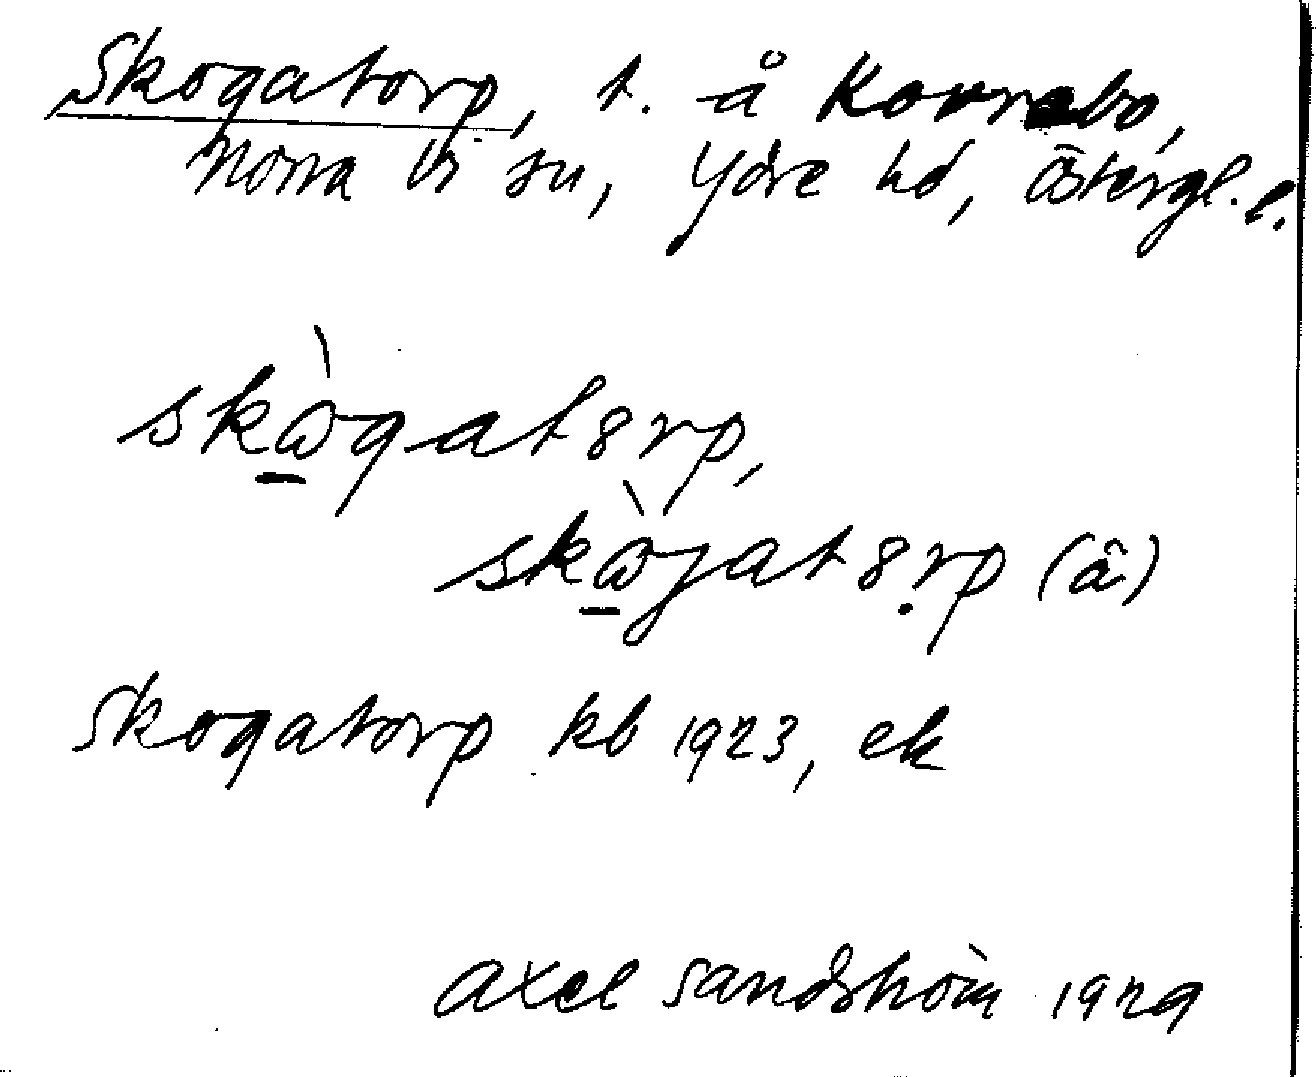 Skogatorp, t. å Korrebo,
Norra Vi sn, Ydre hd, Östergl. l.
skὼgat8rp,
skὼjat8ṛp (å)
Skogatorp kb 1923, ek
Axel Sandström 1929